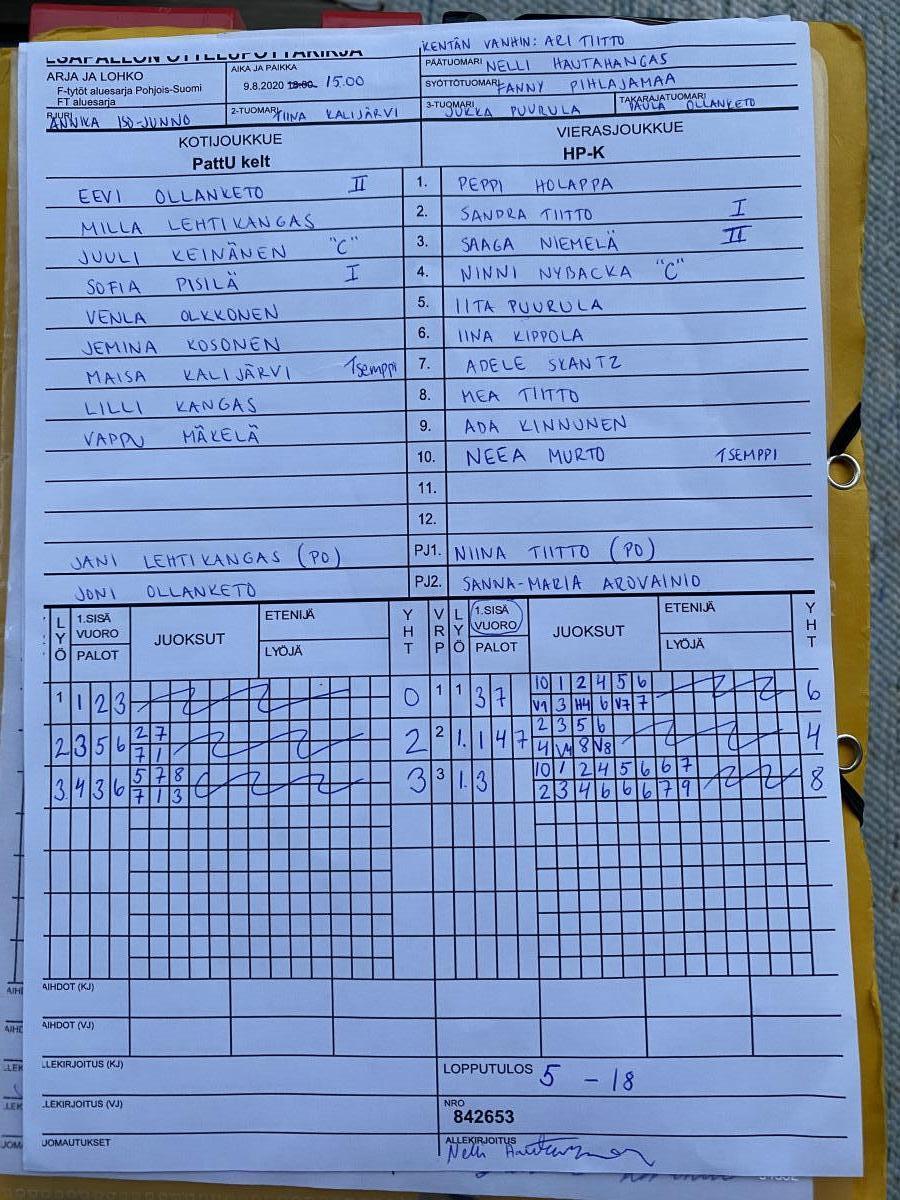 ESÄPALLON OTTELUPÖYTÄKIRJA
KENTÄN VANHIN: ARI TIITTO
ARJA JA LOHKO
F-tytöt aluesarja Pohjois-Suomi
FT aluesarja
AIKA JA PAIKKA
9.8.2020 18:00 15.00
PÄÄTUOMARI NELLI HAUTAHANGAS
SYÖTTÖTUOMARI FANNY PIHLAJAMAA
RJURI ANNIKA ISO-JUNNO
2-TUOMARI TIINA KALIJÄRVI
3-TUOMARI JUKKA PUURULA
TAKARAJATUOMARI PAULA OLLANKETO
KOTIJOUKKUE
PattU kelt
VIERASJOUKKUE
HP-K
EEVI OLLANKETO II 1. PEPPI HOLAPPA
MILLA LEHTIKANGAS 2. SANDRA TIITTO I
JUULI KEINÄNEN "C" 3. SAAGA NIEMELÄ II
SOFIA PISILÄ I 4. NINNI NYBACKA "C"
VENLA OLKKONEN 5. IITA PUURULA
JEMINA KOSONEN 6. IINA KIPPOLA
MAISA KALIJÄRVI 1semppi 7. ADELE SKANTZ
LILLI KANGAS 8. MEA TIITTO
VAPPU MÄKELÄ 9. ADA KINNUNEN
10. NEEA MURTO 1SEMPPI
11.
12.
JANI LEHTIKANGAS (PO) PJ1. NIINA TIITTO (PO)
JONI OLLANKETO PJ2. SANNA-MARIA AROVAINIO
LYÖ 1.SISÄ VUORO PALOT JUOKSUT ETENIJÄ LYÖJÄ YHT VRP LYÖ 1.SISÄ VUORO PALOT JUOKSUT ETENIJÄ LYÖJÄ YHT
1 1 2 3 0 1 1 3 7 10 1 2 4 5 6 6
V1 3 H4 6 V7 7
2 3 5 6 2 7 2 2 1. 1 4 7 2 3 5 6 4
7 1 4 V4 8 V8
3. 4 3 6 5 7 8 3 3 1. 3 10 1 2 4 5 6 6 7 8
7 1 3 2 3 4 6 6 6 7 9
AIHDOT (KJ)
AIHDOT (VJ)
LLEKIRJOITUS (KJ)
LOPPUTULOS 5 - 18
LLEKIRJOITUS (VJ)
NRO
842653
UOMAUTUKSET
ALLEKIRJOITUS